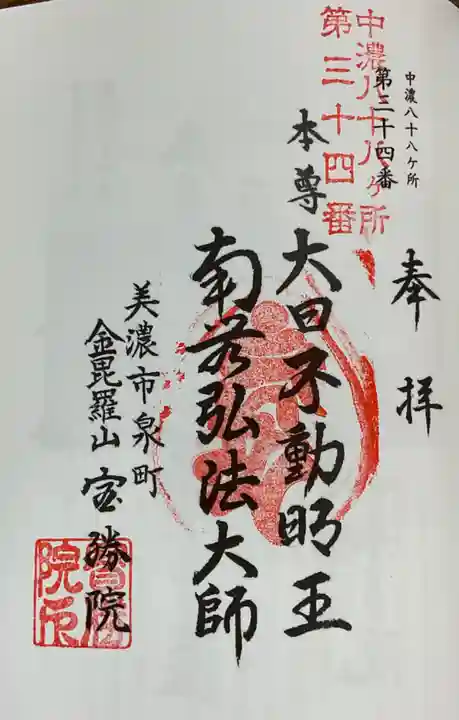 奉拝
中濃八十八ケ所
第三十四番
中濃八十八ヶ所
第三十四番
本尊
大日不動明王
南無弘法大師
美濃市泉町
金毘羅山宝勝院